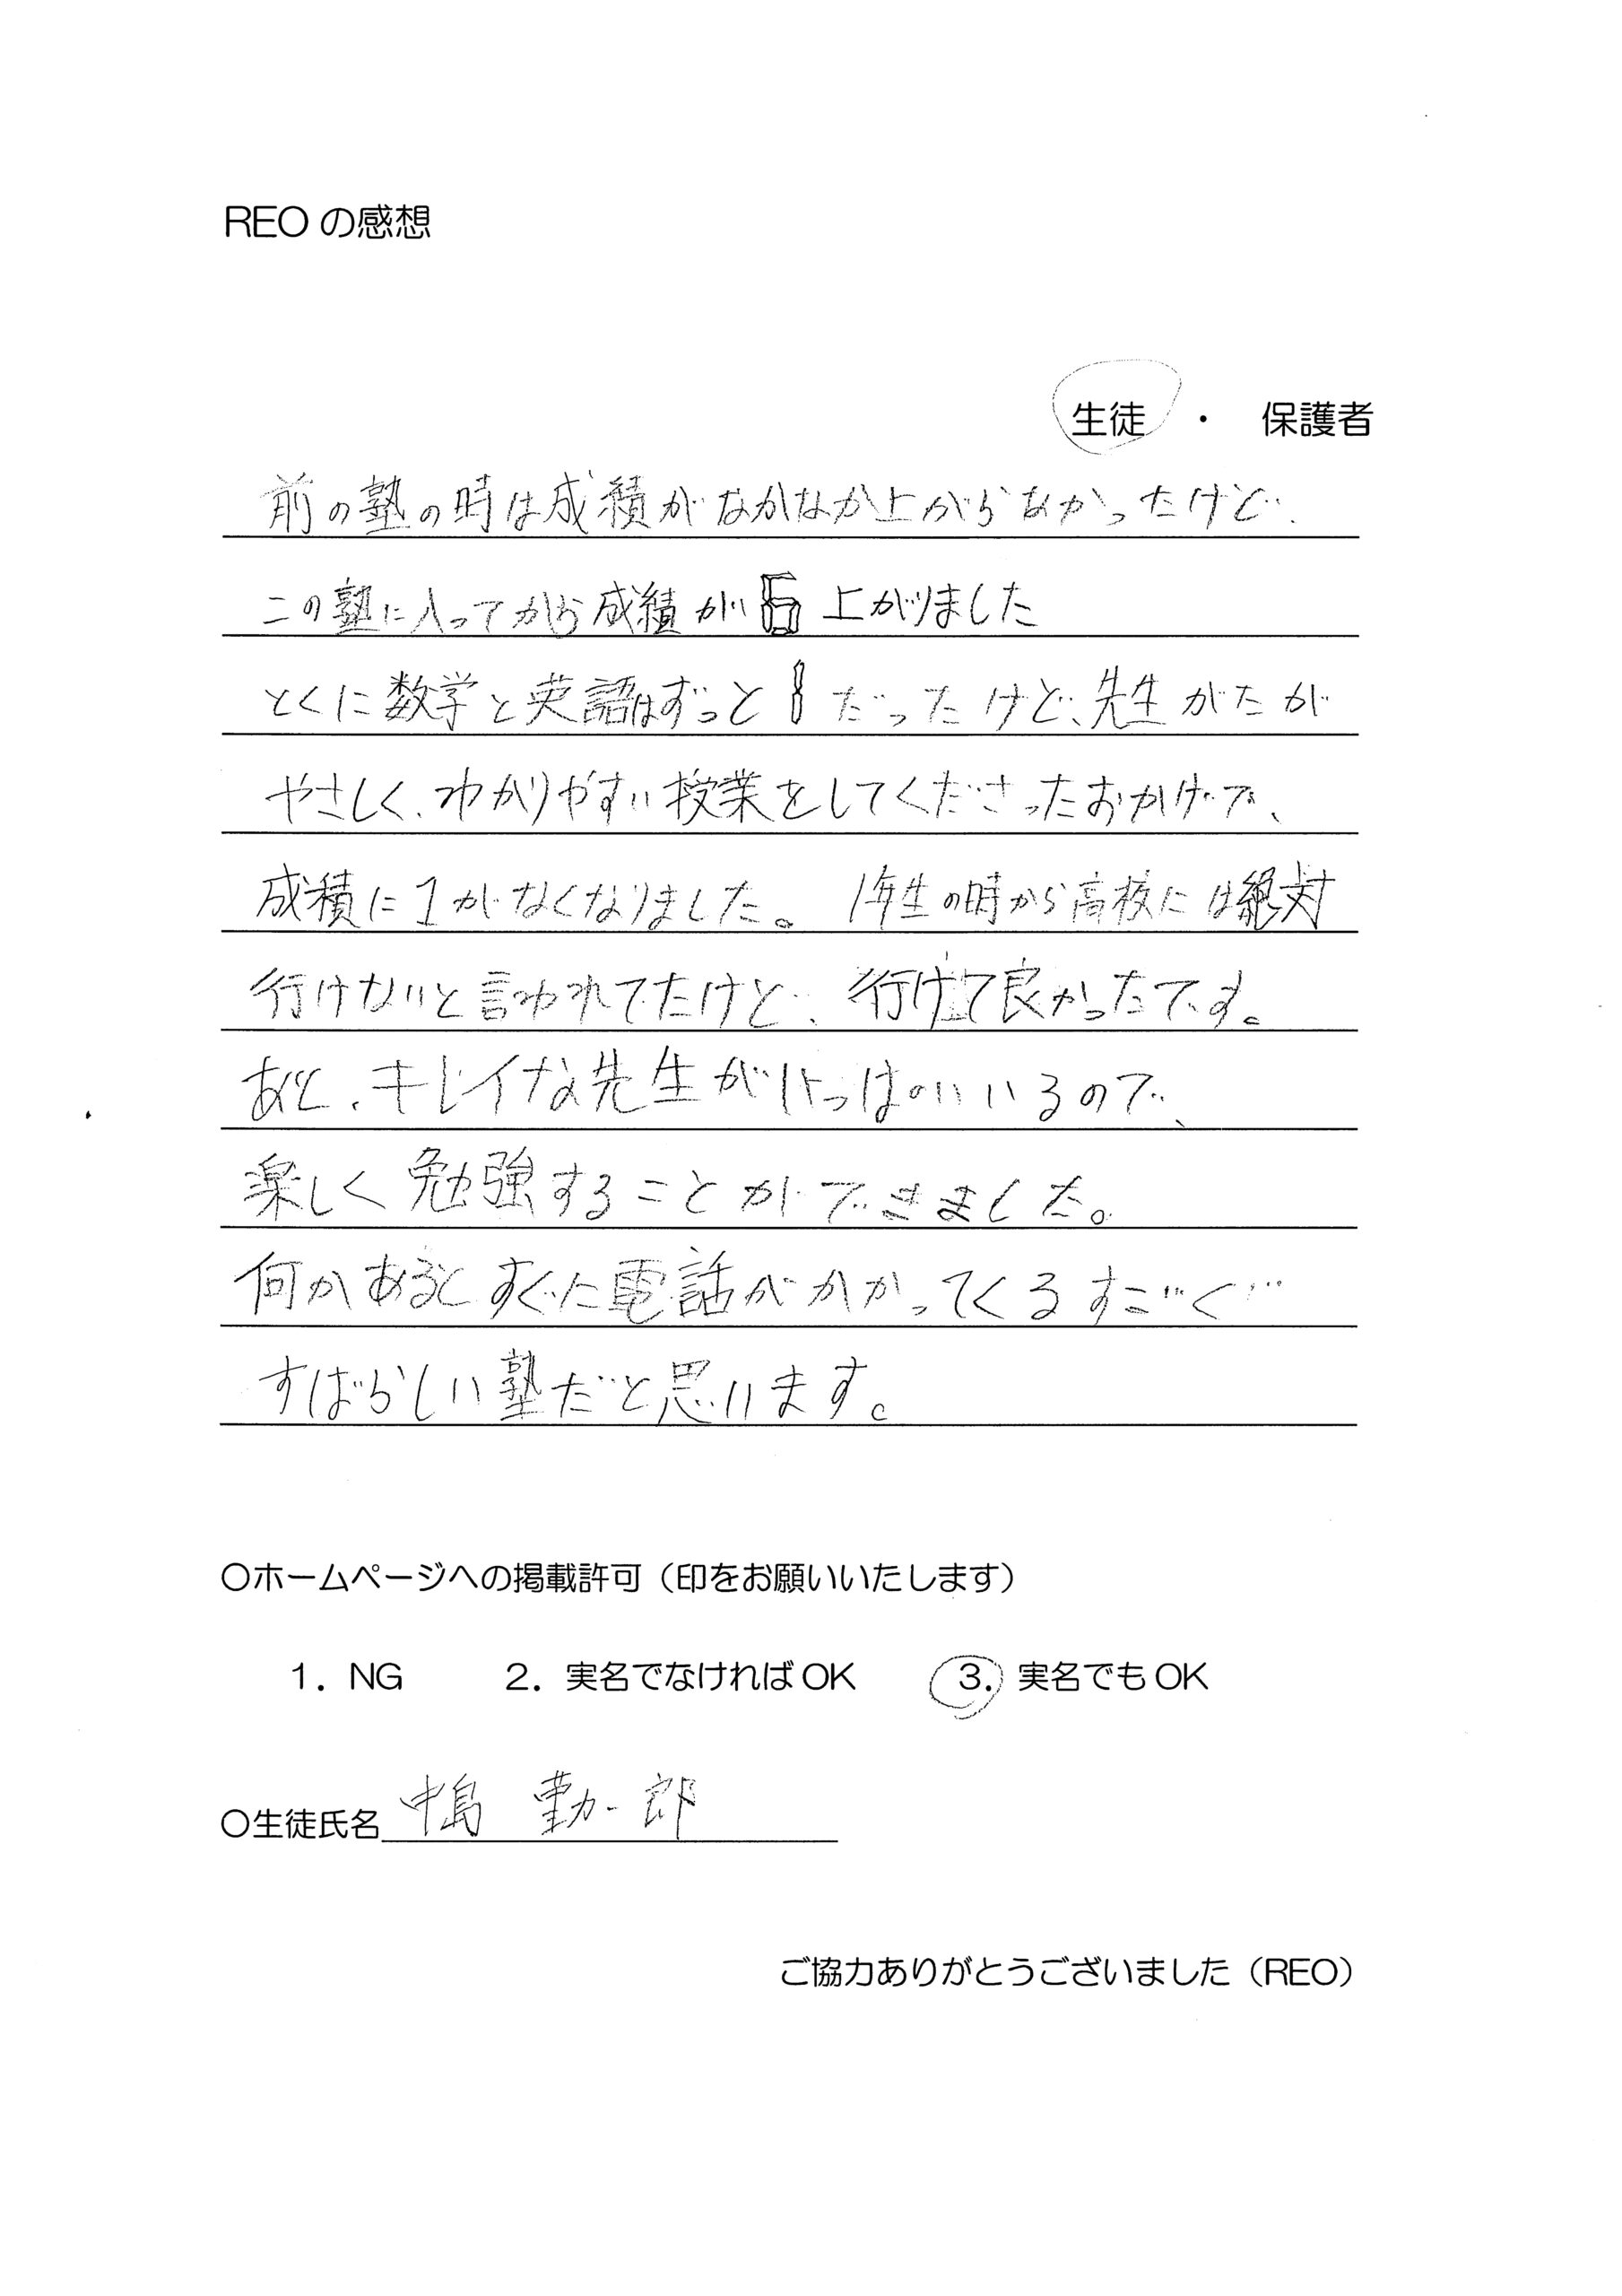 REO の感想
生徒 ・ 保護者
前の塾の時は成積がなかなか上がらなかったけど、
この塾に入ってから成績が6上がりました
とくに数学と英語はずっと1だったけど、先生がたが
やさしく、わかりやすい授業をしてくださったおかげで、
成積に1がなくなりました。 1年生の時から高校には絶対
行けないと言われてたけど、行けて良かったです。
あと、キレイな先生がいっぱいいるので、
楽しく勉強することができました。
何かあるとすぐに電話がかかってくるすごく
すばらしい塾だと思います。
○ホームページへの掲載許可（印をお願いいたします）
1．NG 2．実名でなければOK 3．実名でもOK
○生徒氏名 中島 勤一郎
ご協力ありがとうございました（REO）